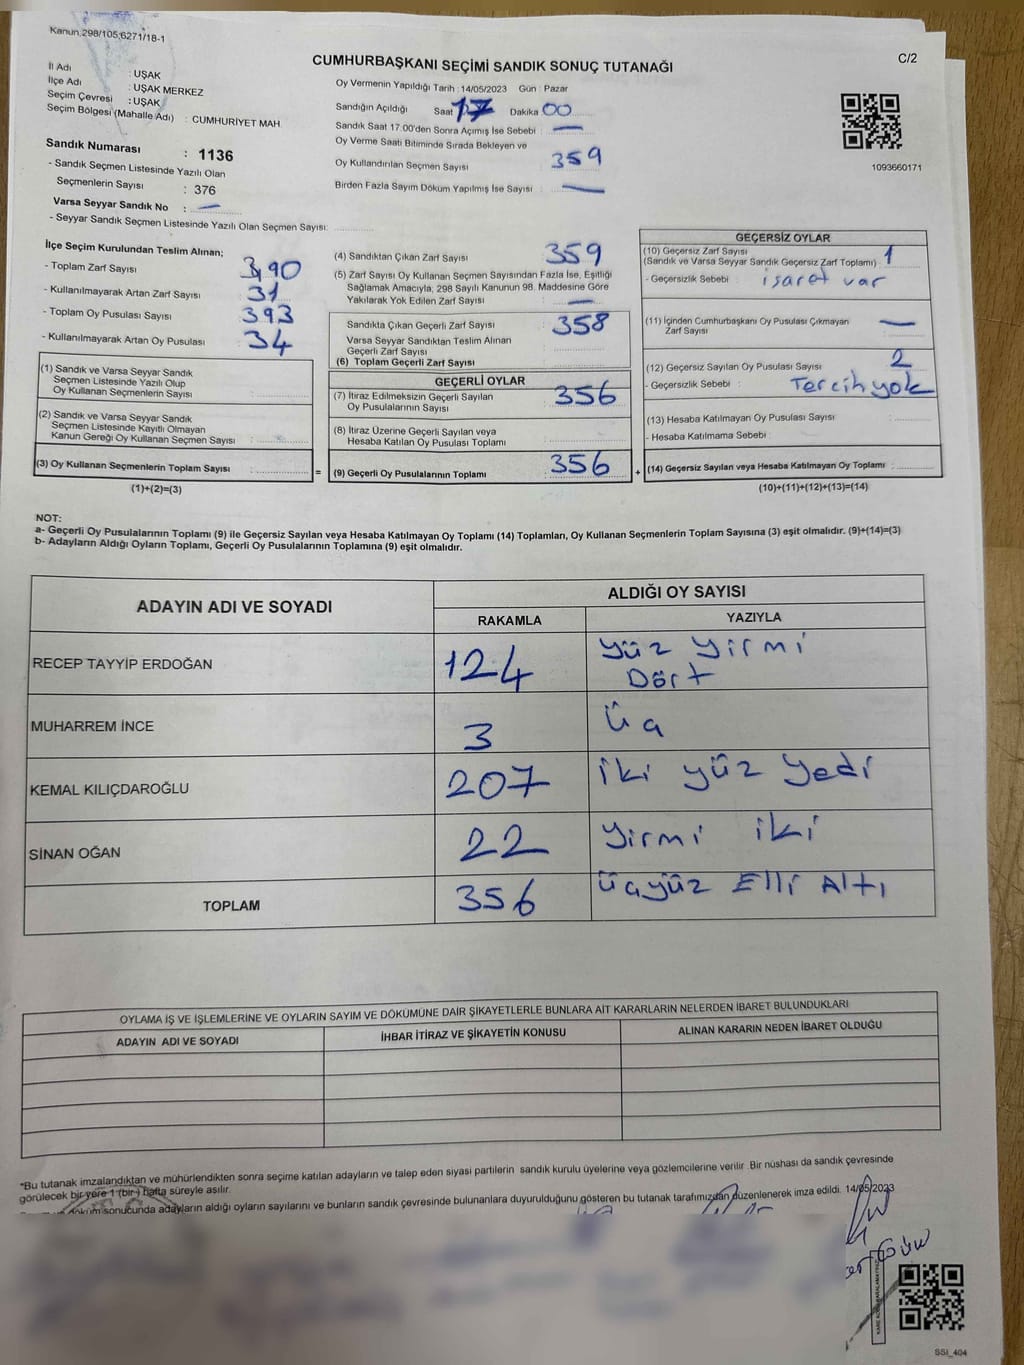 Kanun,298/105;6271/18-1
C/2
CUMHURBAŞKANI SEÇİMİ SANDIK SONUÇ TUTANAĞI
İl Adı : UŞAK
İlçe Adı : UŞAK MERKEZ
Seçim Çevresi : UŞAK
Seçim Bölgesi (Mahalle Adı) : CUMHURİYET MAH.
Sandık Numarası : 1136
- Sandık Seçmen Listesinde Yazılı Olan
Seçmenlerin Sayısı : 376
Varsa Seyyar Sandık No : —
- Seyyar Sandık Seçmen Listesinde Yazılı Olan Seçmen Sayısı:
Oy Vermenin Yapıldığı Tarih : 14/05/2023 Gün : Pazar
Sandığın Açıldığı Saat 17 Dakika 00
Sandık Saat 17.00'den Sonra Açımış İse Sebebi : —
Oy Verme Saati Bitiminde Sırada Bekleyen ve
Oy Kullandırılan Seçmen Sayısı : 359
Birden Fazla Sayım Döküm Yapılmış İse Sayısı : —
1093660171
İlçe Seçim Kurulundan Teslim Alınan;
- Toplam Zarf Sayısı : 390
- Kullanılmayarak Artan Zarf Sayısı : 31
- Toplam Oy Pusulası Sayısı : 393
- Kullanılmayarak Artan Oy Pusulası : 34
(1) Sandık ve Varsa Seyyar Sandık
Seçmen Listesinde Yazılı Olup
Oy Kullanan Seçmenlerin Sayısı :
(2) Sandık ve Varsa Seyyar Sandık
Seçmen Listesinde Kayıtlı Olmayan
Kanun Gereği Oy Kullanan Seçmen Sayısı :
(3) Oy Kullanan Seçmenlerin Toplam Sayısı : =
(1)+(2)=(3)
(4) Sandıktan Çıkan Zarf Sayısı : 359
(5) Zarf Sayısı Oy Kullanan Seçmen Sayısından Fazla İse, Eşitliği
Sağlamak Amacıyla, 298 Sayılı Kanunun 98. Maddesine Göre
Yakılarak Yok Edilen Zarf Sayısı : —
Sandıkta Çıkan Geçerli Zarf Sayısı : 358
Varsa Seyyar Sandıktan Teslim Alınan
Geçerli Zarf Sayısı :
(6) Toplam Geçerli Zarf Sayısı :
GEÇERLİ OYLAR
(7) İtiraz Edilmeksizin Geçerli Sayılan
Oy Pusulalarının Sayısı : 356
(8) İtiraz Üzerine Geçerli Sayılan veya
Hesaba Katılan Oy Pusulası Toplamı :
(9) Geçerli Oy Pusulalarının Toplamı : 356 +
GEÇERSİZ OYLAR
(10) Geçersiz Zarf Sayısı
(Sandık ve Varsa Seyyar Sandık Geçersiz Zarf Toplamı) : 1
- Geçersizlik Sebebi : işaret var
(11) İçinden Cumhurbaşkanı Oy Pusulası Çıkmayan
Zarf Sayısı : —
(12) Geçersiz Sayılan Oy Pusulası Sayısı : 2
- Geçersizlik Sebebi : Tercih yok
(13) Hesaba Katılmayan Oy Pusulası Sayısı :
- Hesaba Katılmama Sebebi :
(14) Geçersiz Sayılan veya Hesaba Katılmayan Oy Toplamı :
(10)+(11)+(12)+(13)=(14)
NOT:
a- Geçerli Oy Pusulalarının Toplamı (9) ile Geçersiz Sayılan veya Hesaba Katılmayan Oy Toplamı (14) Toplamları, Oy Kullanan Seçmenlerin Toplam Sayısına (3) eşit olmalıdır. (9)+(14)=(3)
b- Adayların Aldığı Oyların Toplamı, Geçerli Oy Pusulalarının Toplamına (9) eşit olmalıdır.
ADAYIN ADI VE SOYADI ALDIĞI OY SAYISI
RAKAMLA YAZIYLA
RECEP TAYYİP ERDOĞAN 124 Yüz Yirmi
Dört
MUHARREM İNCE 3 Üç
KEMAL KILIÇDAROĞLU 207 İki yüz Yedi
SİNAN OĞAN 22 Yirmi iki
TOPLAM 356 Üçyüz Elli Altı
OYLAMA İŞ VE İŞLEMLERİNE VE OYLARIN SAYIM VE DÖKÜMÜNE DAİR ŞİKAYETLERLE BUNLARA AİT KARARLARIN NELERDEN İBARET BULUNDUKLARI
ADAYIN ADI VE SOYADI İHBAR İTİRAZ VE ŞİKAYETİN KONUSU ALINAN KARARIN NEDEN İBARET OLDUĞU
*Bu tutanak imzalandıktan ve mühürlendikten sonra seçime katılan adayların ve talep eden siyasi partilerin sandık kurulu üyelerine veya gözlemcilerine verilir. Bir nüshası da sandık çevresinde
görülecek bir yere 1 (bir) hafta süreyle asılır.
döküm sonucunda adayların aldığı oyların sayılarını ve bunların sandık çevresinde bulunanlara duyurulduğunu gösteren bu tutanak tarafımızdan düzenlenerek imza edildi. 14/05/2023
SSI_404